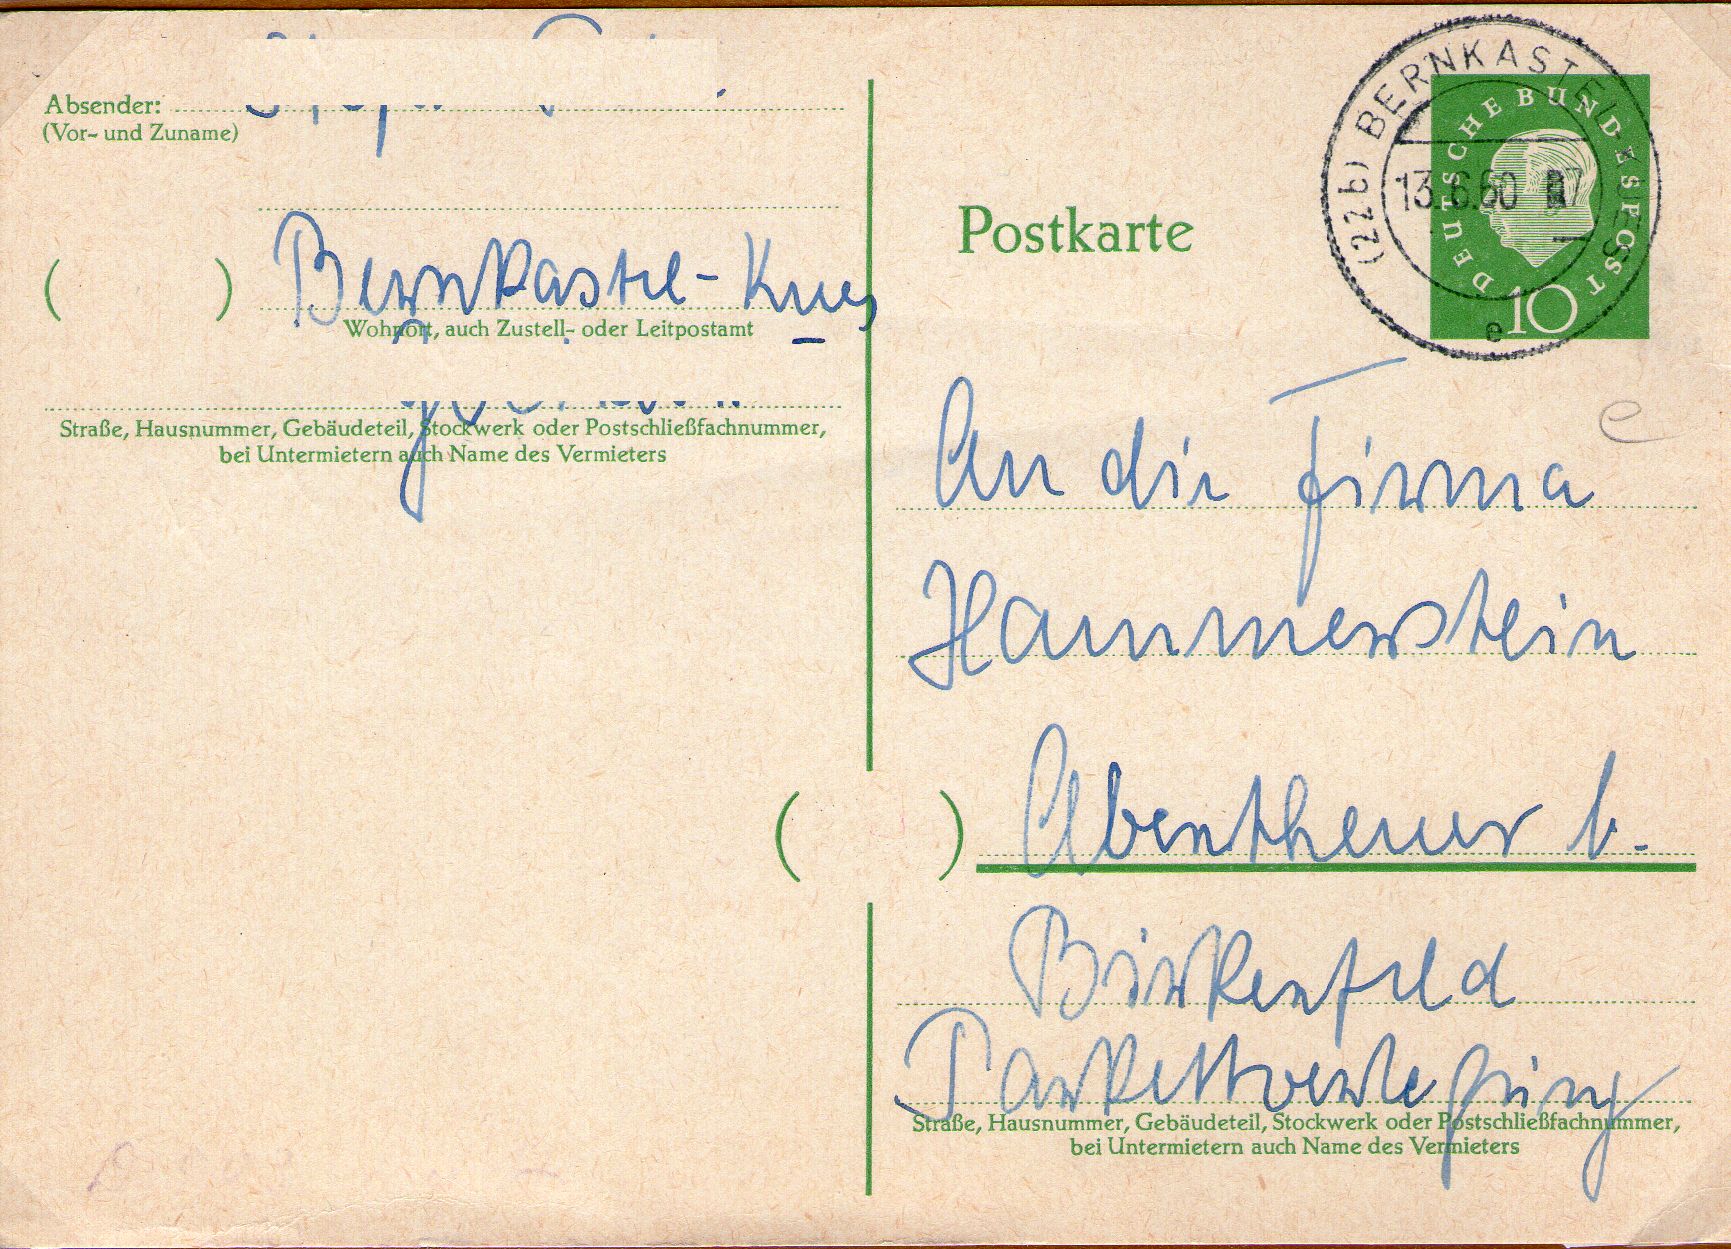 Absender:
(Vor- und Zuname)
Bernkastel-Kues
Wohnort, auch Zustell- oder Leitpostamt
Straße, Hausnummer, Gebäudeteil, Stockwerk oder Postschließfachnummer,
bei Untermietern auch Name des Vermieters
Postkarte
(22b) BERNKASTEL-KUES
13.6.60
e
DEUTSCHE BUNDESPOST
10
e
An die Firma
Hammerstein
Abentheuer b.
Birkenfeld
Parkettverlegung
Straße, Hausnummer, Gebäudeteil, Stockwerk oder Postschließfachnummer,
bei Untermietern auch Name des Vermieters